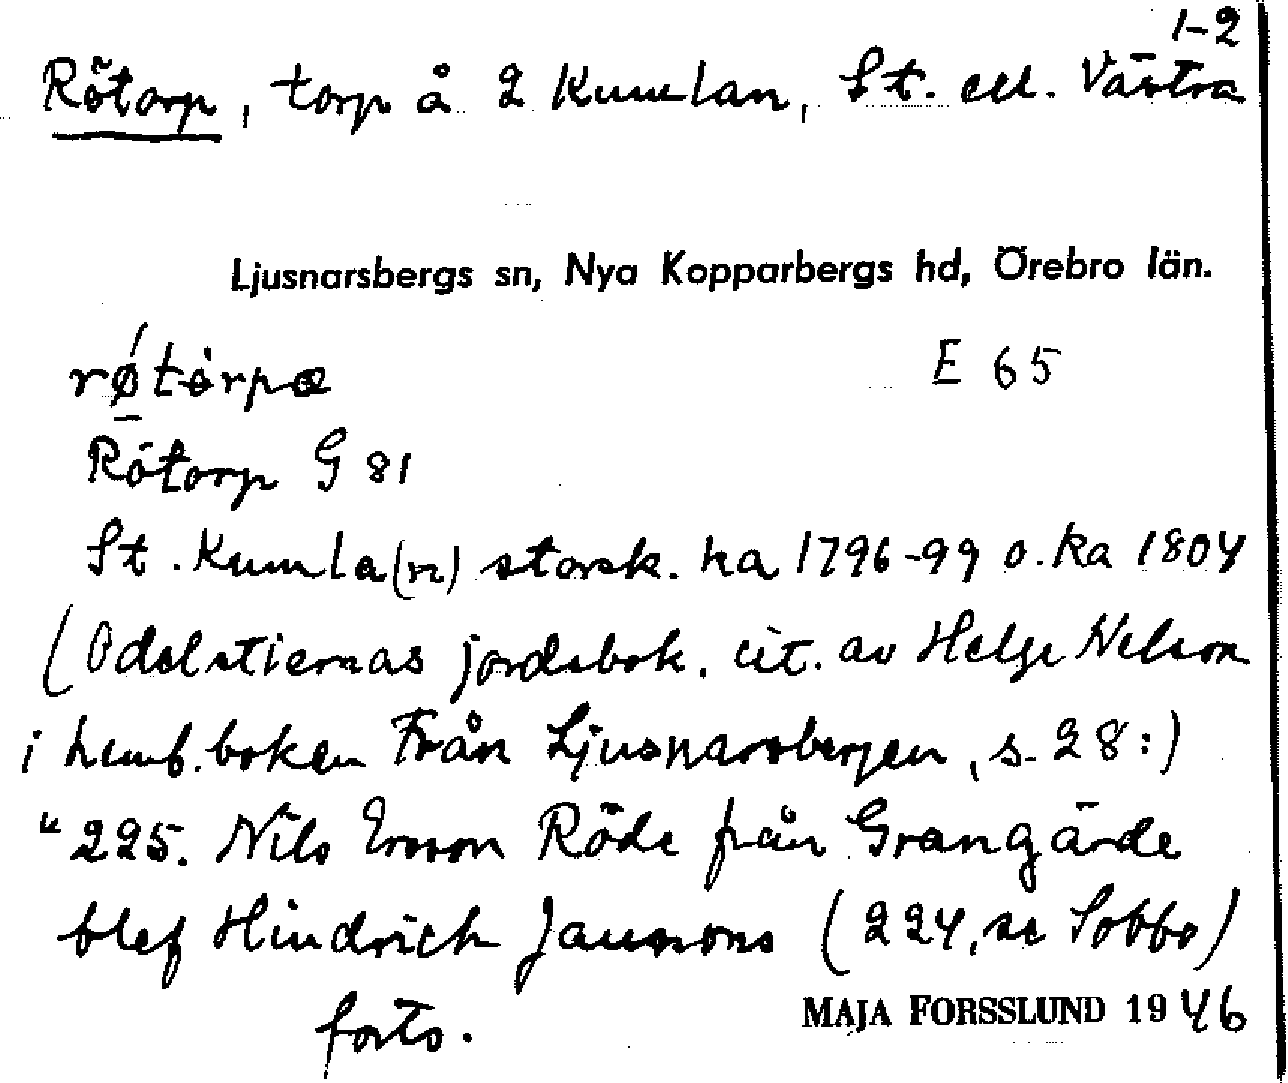 1-2
Rötorp, torp å 2 Kumlan, St. ell. Västra
Ljusnarsbergs sn, Nya Kopparbergs hd, Örebro län.
røtòrpa E 65
Rötorp G 81
St. Kumla(n) storsk. ka 1796-99 o. ka 1804
(Odelstiernas jordebok. cit. av Helge Nelson
i hemb.boken Från Ljusnarsbergen, s. 28:)
"225. Nils Ersson Röde från Grangärde
blef Hindrich Jaussons (224, se Sobbo)
forts.
MAJA FORSSLUND 1946